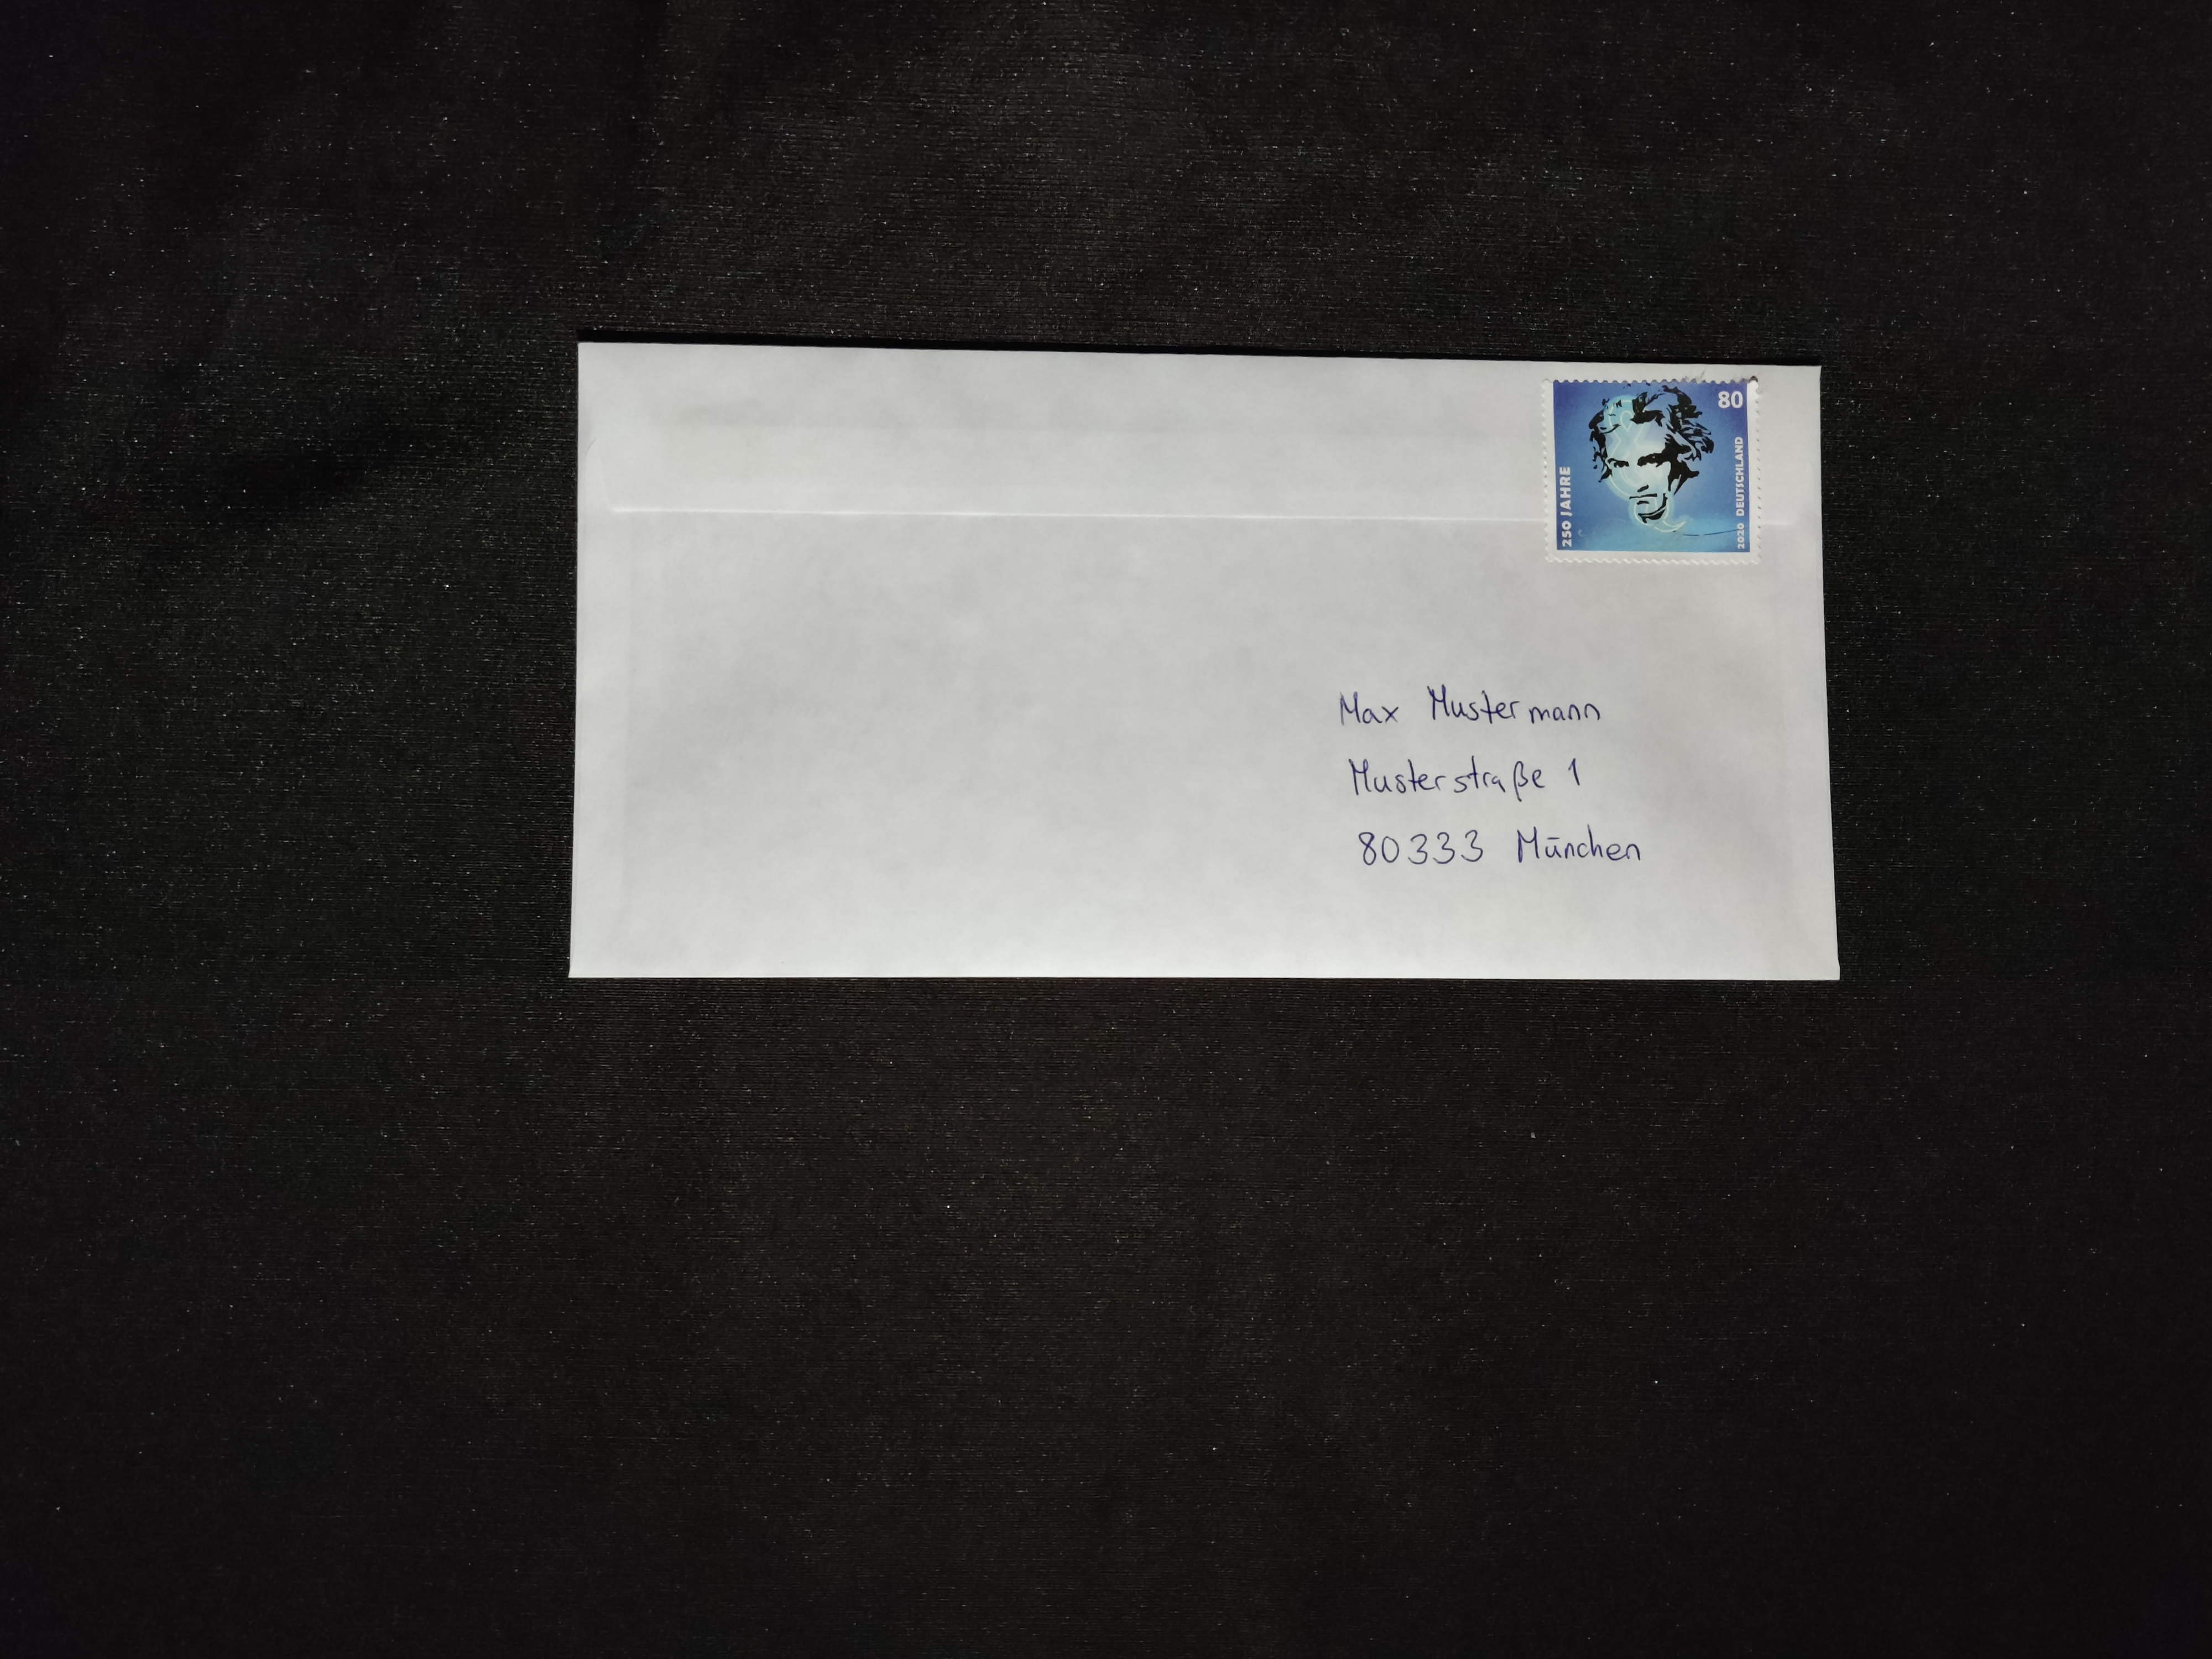 80
250 JAHRE
2020 DEUTSCHLAND
Max Mustermann
Musterstraße 1
80333 München